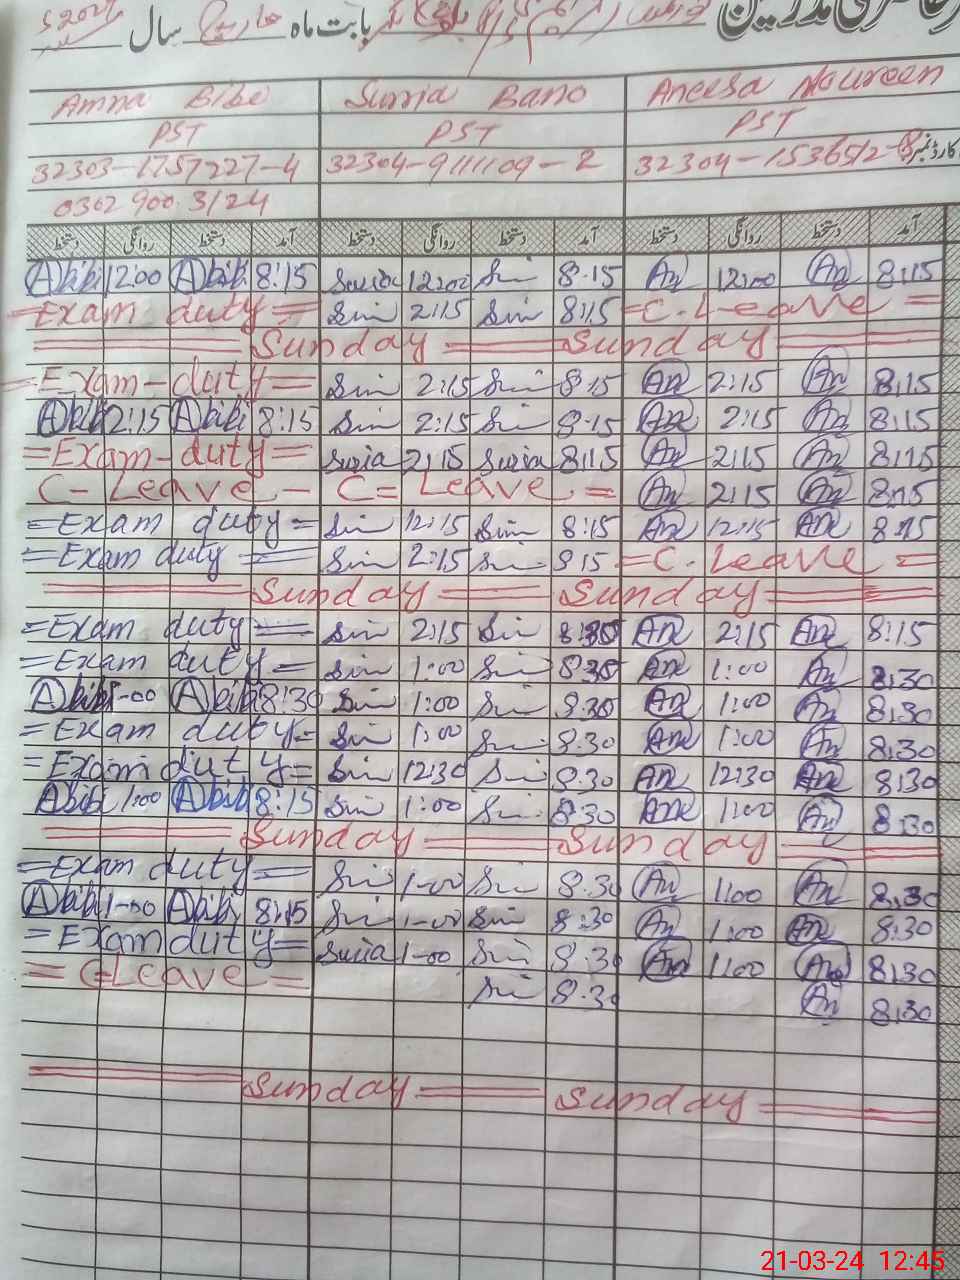 بابت ماہ مارچ سال 2024
Amna Bibi Surria Bano Aneesa Noureen
PST PST PST
32303-1757227-4 32304-9111109-2 32304-1536512-8 کارڈ نمبر
0302 900 3124
دستخط روانگی دستخط آمد دستخط روانگی دستخط آمد دستخط روانگی دستخط آمد
Abibi 12:00 Abibi 8:15 Suria 12:00 Sui 8:15 An 12:00 An 8:15
=Exam duty= Sui 2:15 Sui 8:15 =C. Leave=
Sunday Sunday
=Exam-duty= Sui 2:15 Sui 8:15 An 2:15 An 8:15
Abibi 2:15 Abibi 8:15 Sui 2:15 Sui 8:15 An 2:15 An 8:15
=Exam-duty= Suria 2:15 Suria 8:15 An 2:15 An 8:15
C- Leave - C= Leave = An 2:15 An 8:15
=Exam duty= Sui 12:15 Sui 8:15 An 12:15 An 8:15
=Exam duty= Sui 2:15 Sui 8:15 =C. Leave=
Sunday Sunday
=Exam duty= Sui 2:15 Sui 8:30 An 2:15 An 8:15
=Exam duty= Sui 1:00 Sui 8:30 An 1:00 An 8:30
Abibi 1-00 Abibi 8:30 Sui 1:00 Sui 8:30 An 1:00 An 8:30
=Exam duty= Sui 1:00 Sui 8:30 An 1:00 An 8:30
=Exam duty= Sui 12:30 Sui 8:30 An 12:30 An 8:30
Abibi 1:00 Abibi 8:15 Sui 1:00 Sui 8:30 An 1:00 An 8:30
Sunday Sunday
=Exam duty= Sui 1-00 Sui 8:30 An 1:00 An 8:30
Abibi 1-00 Abibi 8:15 Sui 1-00 Sui 8:30 An 1:00 An 8:30
=Exam duty= Suria 1-00 Sui 8:30 An 1:00 An 8:30
= C-Leave = Sui 8:30 An 8:30
Sunday Sunday
21-03-24 12:45